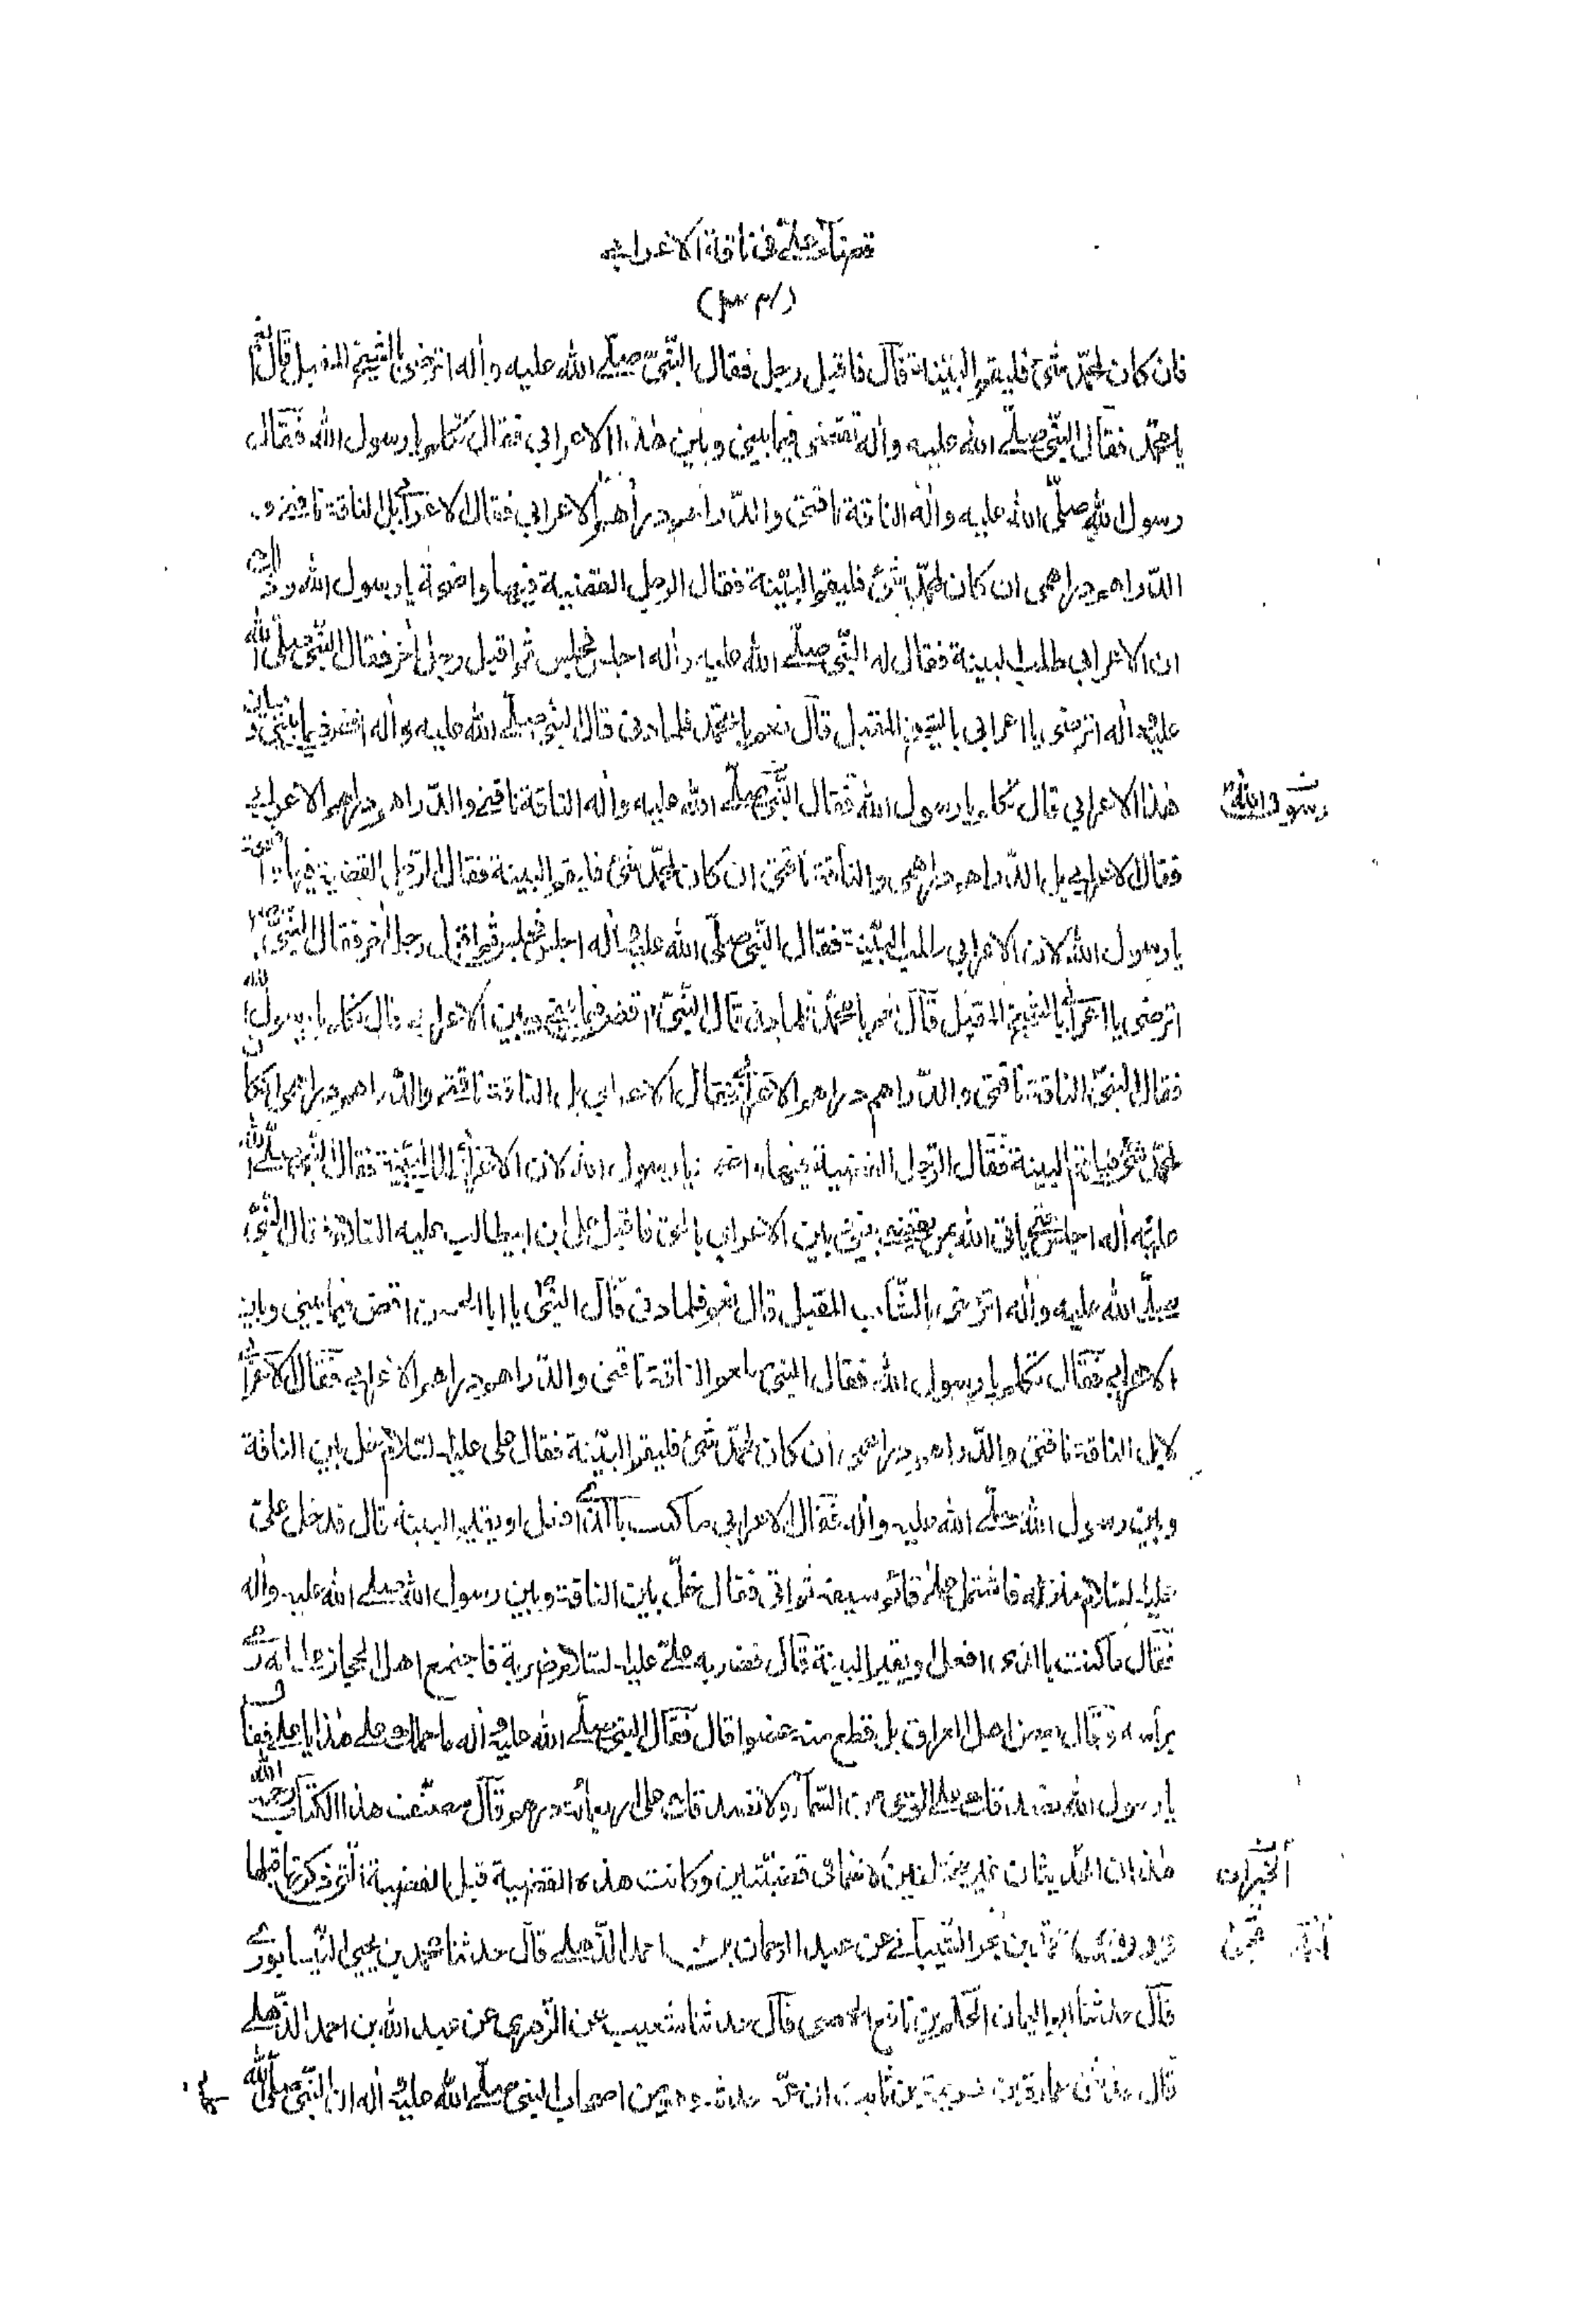 قضاء علي في ناقة الاعرابي
فان كان لمحمد شئ فليقم البينة قال فاقبل رجل فقال النبي صلى الله عليه وآله اترضى بالشيخ المقبل قال نعم
يا محمد فقال النبي صلى الله عليه وآله تقضى فيما بيني وبين هذا الاعرابي فقال تكلم يا رسول الله فقال
رسول الله صلى الله عليه وآله الناقة ناقتي والدراهم دراهم الاعرابي فقال الاعرابي بل الناقة ناقتي و
الدراهم دراهمى ان كان لمحمد شئ فليقم البينة فقال الرجل القضية فيها واضحة يا رسول الله وذلك
ان الاعرابي طلب البينة فقال له النبي صلى الله عليه وآله اجلس فجلس ثم اقبل رجل آخر فقال النبي صلى الله
عليه وآله اترضى يا اعرابي بالشيخ المقبل قال نعم يا محمد فلما دنى قال النبي صلى الله عليه وآله اقض فيما بيني و بين
هذا الاعرابي قال تكلم يا رسول الله فقال النبي صلى الله عليه وآله الناقة ناقتي والدراهم دراهم الاعرابي
رسول الله
فقال الاعرابي بل الدراهم دراهمى والناقة ناقتي ان كان لمحمد شئ فليقم البينة فقال الرجل القضية فيها واضحة
يا رسول الله لان الاعرابي طلب البينة فقال النبي صلى الله عليه وآله اجلس فجلس ثم اقبل رجل آخر فقال النبي
اترضى يا اعرابي بالشيخ المقبل قال نعم يا محمد فلما دنى قال النبي اقض فيما بيني وبين الاعرابي قال تكلم يا رسول الله
فقال النبي الناقة ناقتي والدراهم دراهم الاعرابي فقال الاعرابي بل الناقة ناقتي والدراهم دراهمى ان كان
لمحمد شئ فليقم البينة فقال الرجل القضية فيها واضحة يا رسول الله لان الاعرابي طلب البينة فقال النبي صلى الله
عليه وآله اجلس حتى ياتى الله بمن يقضى بيني وبين الاعرابي بالحق فاقبل على ابن ابيطالب عليه السلام فقال النبي
صلى الله عليه وآله اترضى بالشاب المقبل قال نعم فلما دنى قال النبي يا ابا الحسن اقض فيما بيني وبين
الاعرابي فقال تكلم يا رسول الله فقال النبي صلعم الناقة ناقتي والدراهم دراهم الاعرابي فقال الاعرابي
لا بل الناقة ناقتي والدراهم دراهمى ان كان لمحمد شئ فليقم البينة فقال على عليه السلام خل بين الناقة
وبين رسول الله صلى الله عليه وآله فقال الاعرابي ما كنت بالذى افعل او يقيم البينة قال فدخل على
عليه السلام منزله فاشتمل على قائم سيفه ثم اتى فقال خل بين الناقة وبين رسول الله صلى الله عليه وآله
فقال ما كنت بالذى افعل او يقيم البينة قال فضربه على عليه السلام ضربة فاجتمع اهل الحجاز على انه رمى
برأسه وقال بعض اهل العراق بل قطع منه عضوا قال فقال النبي صلى الله عليه وآله ما حملك على هذا يا على فقال
يا رسول الله نصدقك على الوحى من السماء ولا نصدقك على اربعمائة درهم قال مصنف هذا الكتاب رحمه الله
هذان الحديثان غير مختلفين لانهما فى قضيتين وكانت هذه القضية قبل القضية التى ذكرتها قبلها
الخبران
وروى محمد بن بحر الشيبانى عن عبد الرحمان بن احمد الذهلى قال حدثنا محمد بن يحيى النيسابورى
قال حدثنا ابو اليمان الحكم بن نافع الحمصى قال حدثنا شعيب عن الزهرى عن عبد الله بن احمد الذهلى
قال حدثنى عمارة بن خزيمة بن ثابت ان عمه حدثه وهو من اصحاب النبي صلى الله عليه وآله ان النبي صلى الله